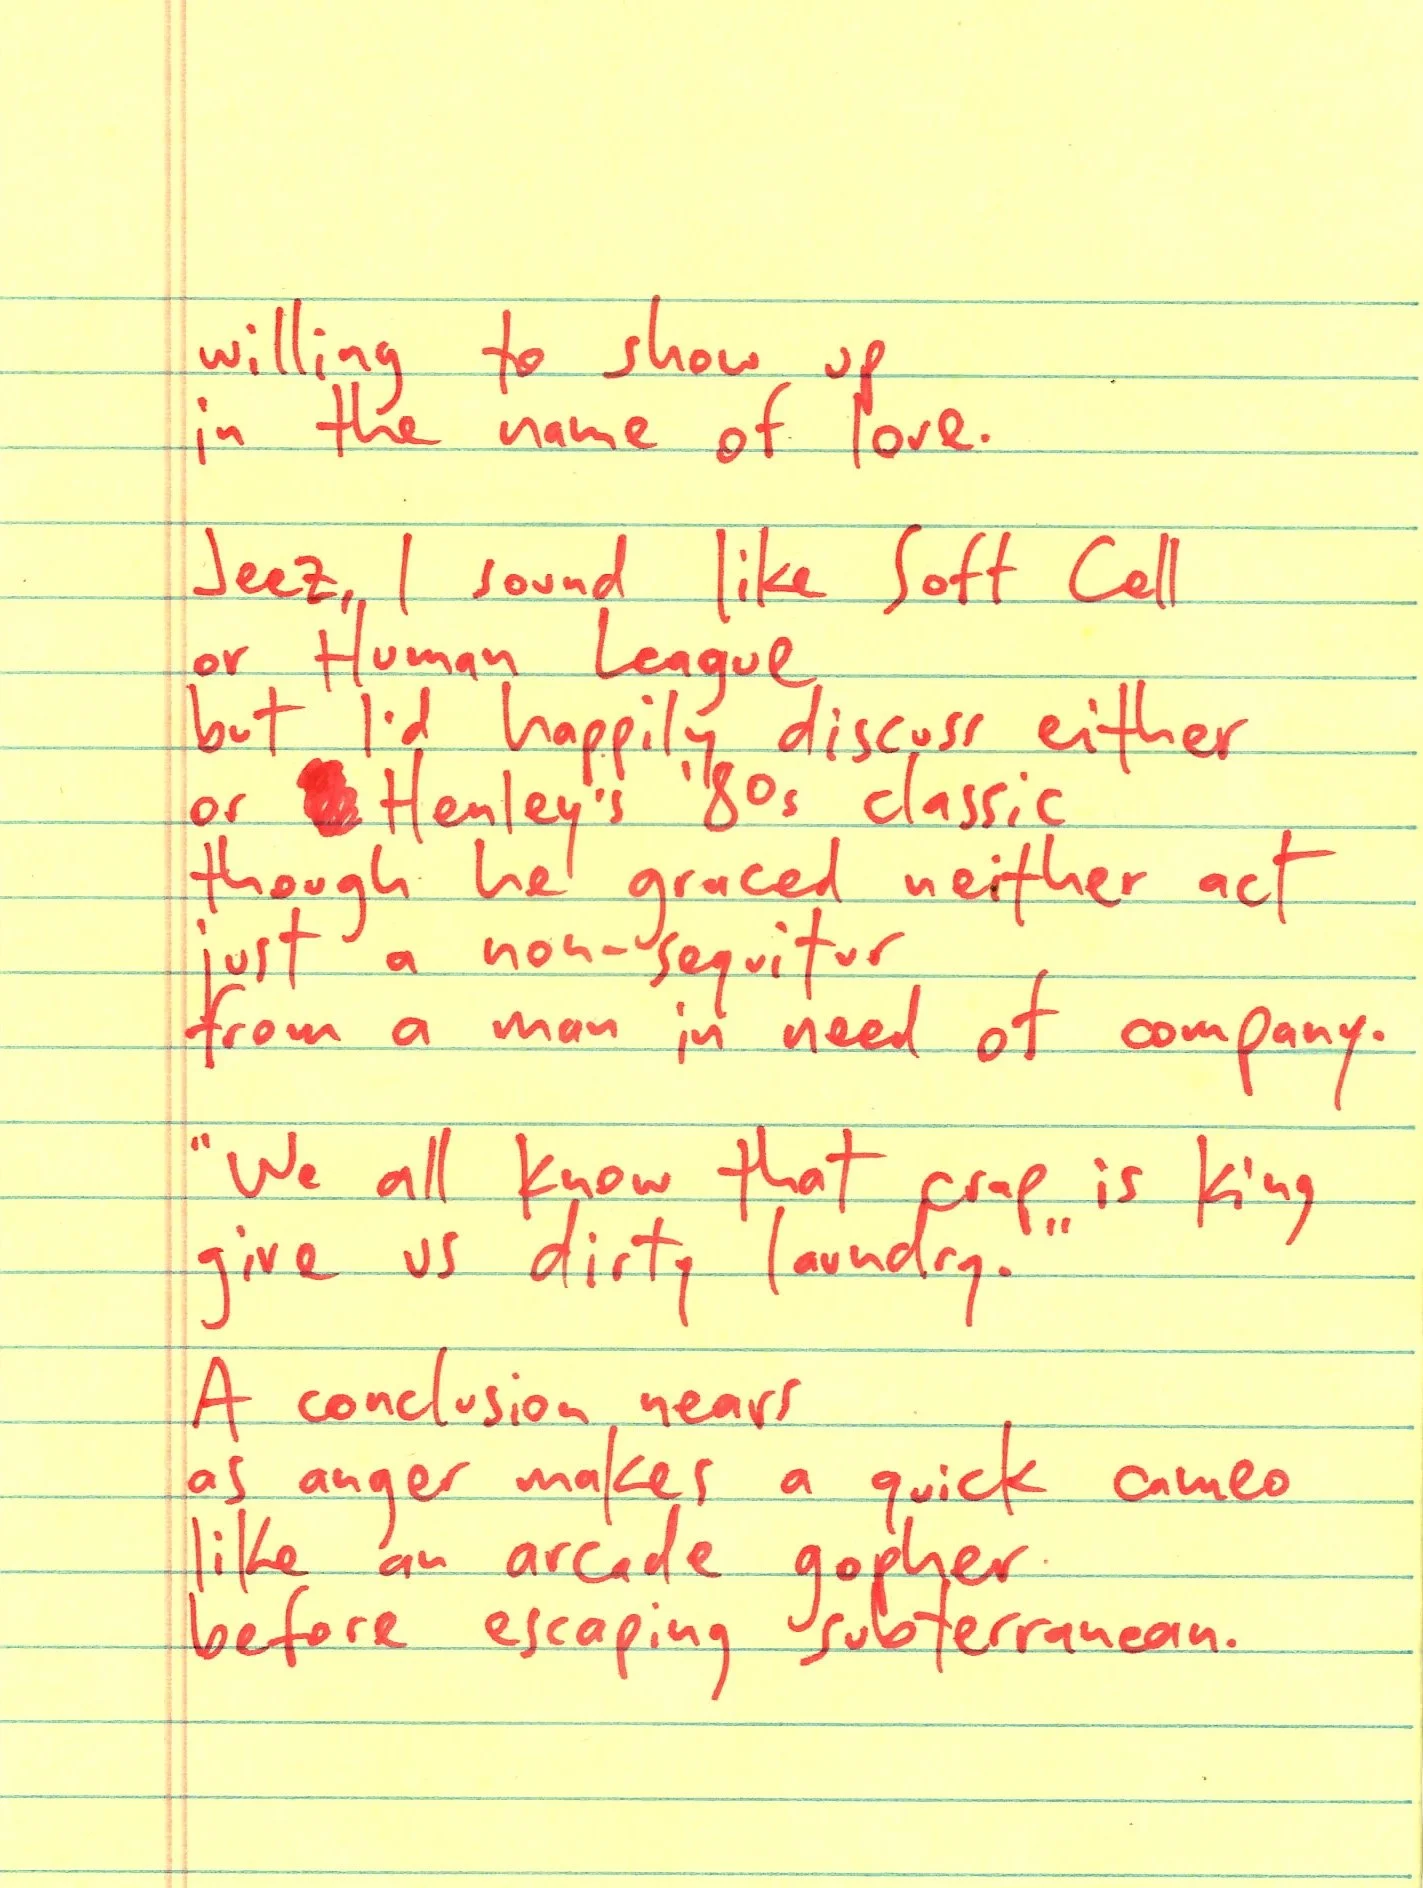 willing to show up
in the name of love.
Jeez, I sound like Soft Cell
or Human League
but I'd happily discuss either
or Henley's '80s classic
though he graced neither act
just a non-sequitur
from a man in need of company.
"We all know that crap is king
give us dirty laundry."
A conclusion nears
as anger makes a quick cameo
like an arcade gopher
before escaping subterranean.